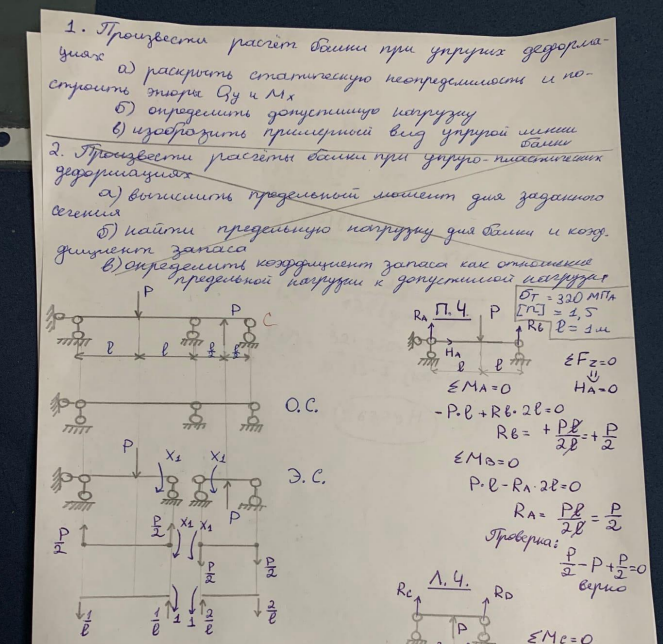 1. Произвести расчёт балки при упругих деформа-
циях
а) раскрыть статическую неопределимость и по-
строить эпюры Qy и Mx
б) определить допустимую нагрузку
в) изобразить примерный вид упругой линии
балки
2. Произвести расчёты балки при упруго-пластических
деформациях
а) вычислить предельный момент для заданного
сечения
б) найти предельную нагрузку для балки и коэф-
фициент запаса
в) определить коэффициент запаса как отношение
предельной нагрузки к допустимой нагрузке
P
P
C
l l l/2 l/2
О.С.
P X1 X1
P
Э.С.
P/2 P/2 X1 X1
P/2 P/2
1/l 1/l 1 1 2/l 2/l
σт = 320 МПа
[n] = 1,5
l = 1м
П.Ч.
RA P RB
HA
l l
ΣFz=0
⇓
HA=0
ΣMA=0
-P·l+RB·2l=0
RB= +Pl/2l=+P/2
ΣMB=0
P·l-RA·2l=0
RA= Pl/2l=P/2
Проверка:
P/2-P+P/2=0
верно
Л.Ч.
RC RD
P
ΣMC=0